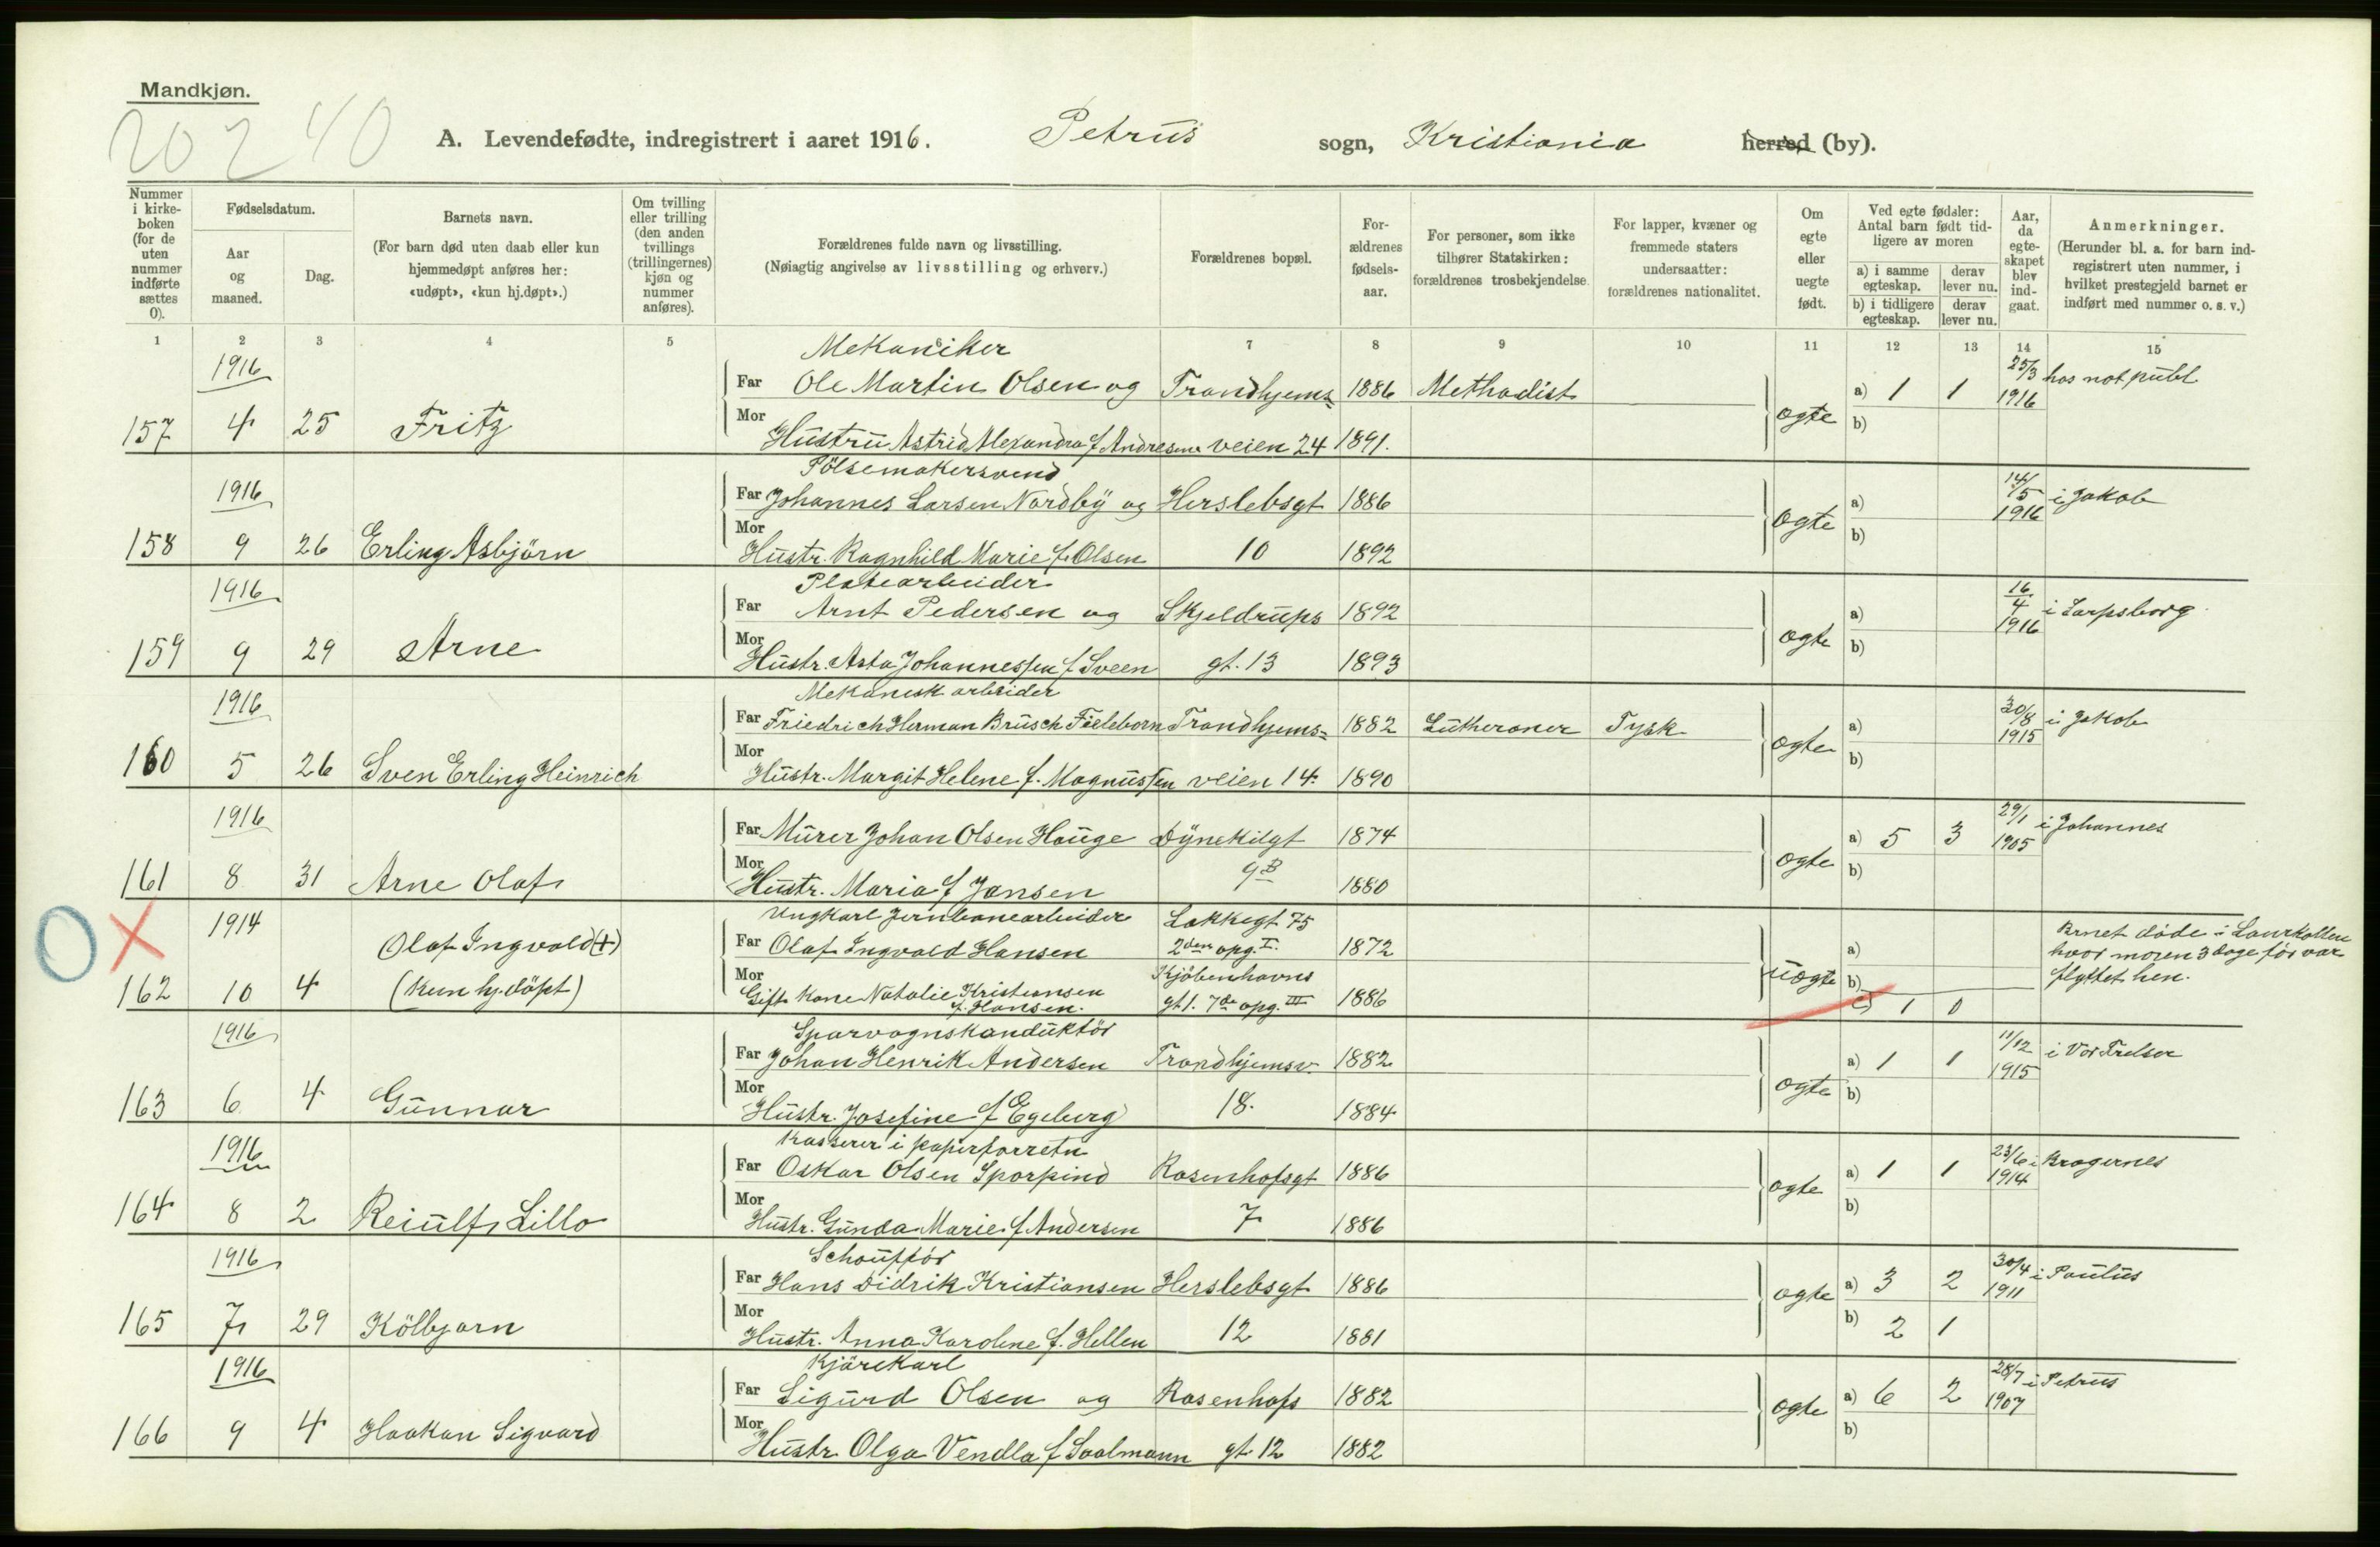 Mandkjøn.
20240
A. Levendefødte, indregistrert i aaret 1916. Petrus sogn, Kristiania herred (by).
Nummer i kirkeboken (for de uten nummer indførte sættes 0).
Fødselsdatum.
Aar og maaned.
Dag.
Barnets navn.
(For barn død uten daab eller kun hjemmedøpt anføres her: «udøpt», «kun hj.døpt».)
Om tvilling eller trilling (den anden tvillings (trillingernes) kjøn og nummer anføres).
Forældrenes fulde navn og livsstilling.
(Nøiagtig angivelse av livsstilling og erhverv.)
Forældrenes bopæl.
Forældrenes fødselsaar.
For personer, som ikke tilhører Statskirken: forældrenes trosbekjendelse.
For lapper, kvæner og fremmede staters undersaatter: forældrenes nationalitet.
Om egte eller uegte født.
Ved egte fødsler: Antal barn født tidligere av moren
a) i samme egteskap. derav lever nu.
b) i tidligere egteskap. derav lever nu.
Aar, da egteskapet blev indgaat.
Anmerkninger.
(Herunder bl. a. for barn indregistrert uten nummer, i hvilket prestegjeld barnet er indført med nummer o. s. v.)
1 2 3 4 5 6 7 8 9 10 11 12 13 14 15
1916 Mekaniker
Far Ole Martin Olsen og Trondhjems= 1886 Methodist a) 1 1 25/3 1916 hos not publ
157 4 25 Fritz Mor Hustru Astrid Alexandra f. Andresen veien 24 1891. ogte b)
1916 Pölsemakersvend
Far Johannes Larsen Nordby og Herslebsgt 1886 a) 14/5 1916 i Jakob
158 9 26 Erling Asbjörn Mor Hustr. Ragnhild Marie f. Olsen 10 1892 ogte b)
1916 Platearbeider
Far Arnt Pedersen og Skjeldrups 1892 a) 16/4 1916 i Sarpsborg
159 9 29 Arne Mor Hustr. Asta Johannessen f Sveen gt. 13 1893 ogte b)
1916 Mekanisk arbeider
Far Friedrich Herman Brusch Fieleborn Trondhjems= 1882 Lutheraner Tysk a) 30/8 1915 i Jakob
160 5 26 Sven Erling Heinrich Mor Hustr. Margit Helene f. Magnussen veien 14. 1890 ogte b)
1916
Far Murer Johan Olsen Hauge Dynekilgt 1874 a) 5 3 29/1 1905 i Johannes
161 8 31 Arne Olaf Mor Hustr. Maria f Jansen 9B 1880 ogte b)
1914 Ungkarl Jernbanearbeider Lakkegt 75
O X Olaf Ingvald (+) Far Olaf Ingvald Hansen 2den opg. I. 1872 a) Brnet döde i Laurkollen hvor moren 3 dage för var flyttet hen.
162 10 4 (kun hj.döpt) Mor Gift Kone Natalie Kristiansen f. Hansen. Kjöbenhavns gt 1. 7de opg. III 1886 uogte b) c) 1 0
1916 Sporvognskonduktör
Far Johan Henrik Andersen Trondhjemsv. 1882 a) 1 1 11/12 1915 i Vor Frelser
163 6 4 Gunnar Mor Hustr. Josefine f Egeberg 18. 1884 ogte b)
1916 Kasserer i papirforretn
Far Oskar Olsen Sporpind Rosenhofsgt 1886 a) 1 1 23/6 1914 i Bragernes
164 8 2 Reiulf Lillo Mor Hustr. Gunda Marie f. Andersen 7 1886 ogte b)
1916 Schoufför
Far Hans Didrik Kristiansen Herslebsgt 1886 a) 3 2 30/4 1911 i Paulus
165 7 29 Kölbjorn Mor Hustr. Anna Karoline f. Hellen 12 1881 ogte b) 2 1
1916 Kjörekarl
Far Sigurd Olsen og Rosenhofs 1882 a) 6 2 28/7 1907 i Petrus
166 9 4 Haakon Sigvard Mor Hustr Olga Vendla f Saalmann gt. 12 1882 ogte b)